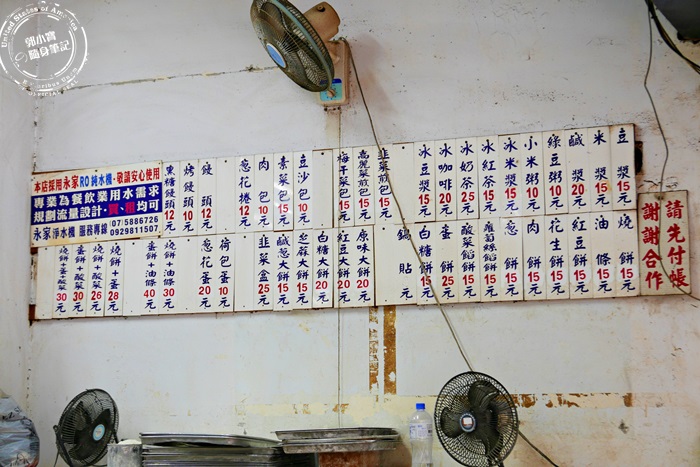 郭小寶
隨身筆記
本店採用永家RO純水機,敬請安心使用
專業為餐飲業用水需求
規劃流量設計,買租均可
永家淨水機 服務專線
07-5886726
0929811507
請先付帳
謝謝合作
豆漿15元
米漿15元
鹹漿20元
綠豆粥10元
小米粥10元
冰米漿15元
冰紅茶15元
冰奶茶25元
冰咖啡20元
冰豆漿15元
韭菜煎包15元
高麗菜煎包15元
梅干菜包15元
豆沙包10元
素菜包15元
肉包10元
蔥花捲12元
饅頭10元
烤饅頭12元
黑糖饅頭12元
燒餅15元
油條15元
紅豆餅15元
花生餅15元
肉餅15元
蘿蔔絲餡餅15元
酸菜餡餅15元
蛋餅25元
白糖餅15元
鍋貼元
原味大餅20元
紅豆大餅20元
白糖大餅20元
芝麻大餅15元
鹹蔥大餅15元
韭菜盒25元
荷包蛋10元
蔥花蛋20元
燒餅+油條30元
蛋餅+油條40元
燒餅+蛋28元
燒餅+酸菜26元
燒餅+蛋30元
燒餅+蛋+酸菜30元